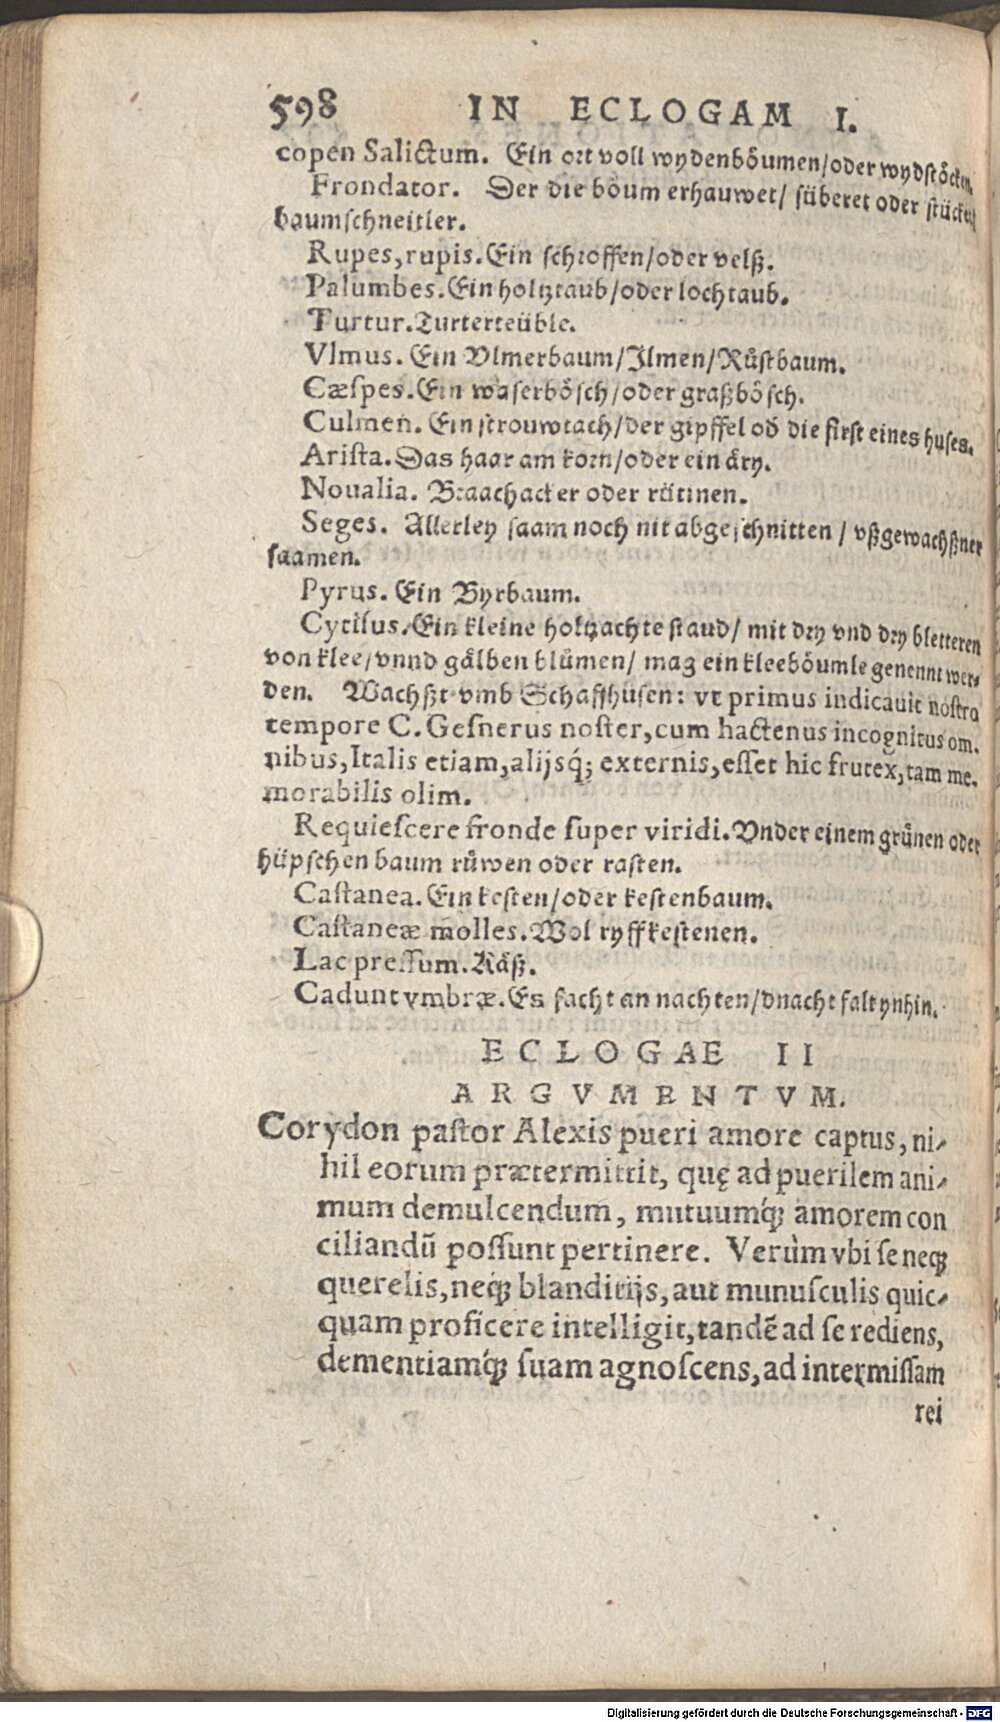 598 IN ECLOGAM I.
copen Salictum. Ein ort voll wydenböumen/oder wydstöcken.
Frondator. Der die böum erhauwet/ süberet oder stücket/
baumschneitler.
Rupes, rupis. Ein schroffen/oder velß.
Palumbes. Ein holtztaub/oder lochtaub.
Turtur. Turterteüble.
Vlmus. Ein Vlmerbaum/Ilmen/Růstbaum.
Cæspes. Ein waserbösch/oder graßbösch.
Culmen. Ein strouwtach/der gipffel ob die first eines huses.
Arista. Das haar am korn/oder ein äry.
Noualia. Braachacker oder rütinen.
Seges. Allerley saam noch nit abgeschnitten / vßgewachßner
saamen.
Pyrus. Ein Byrbaum.
Cytisus. Ein kleine holtzachte staud/ mit dry vnd dry bletteren
von klee/vnnd gälben blůmen/ mag ein kleeböumle genennt wer-
den. Wachßt vmb Schaffhusen: vt primus indicauit nostro
tempore C. Gesnerus noster, cum hactenus incognitus om-
nibus, Italis etiam, alijsq́; externis, esset hic frutex, tam me-
morabilis olim.
Requiescere fronde super viridi. Vnder einem grůnen oder
hüpschen baum růwen oder rasten.
Castanea. Ein kesten/oder kestenbaum.
Castaneæ molles. Wol ryff kestenen.
Lac pressum. Käß.
Cadunt vmbræ. Es facht an nachten/dnacht falt ynhin.
ECLOGAE II
ARGVMENTVM.
Corydon pastor Alexis pueri amore captus, ni-
hil eorum prætermittit, quę ad puerilem ani-
mum demulcendum, mutuumq́; amorem con
ciliandũ possunt pertinere. Verùm vbi se neq;
querelis, neq; blanditijs, aut munusculis quic-
quam proficere intelligit, tandẽ ad se rediens,
dementiamq́; suam agnoscens, ad intermissam
rei
Digitalisierung gefördert durch die Deutsche Forschungsgemeinschaft - DFG